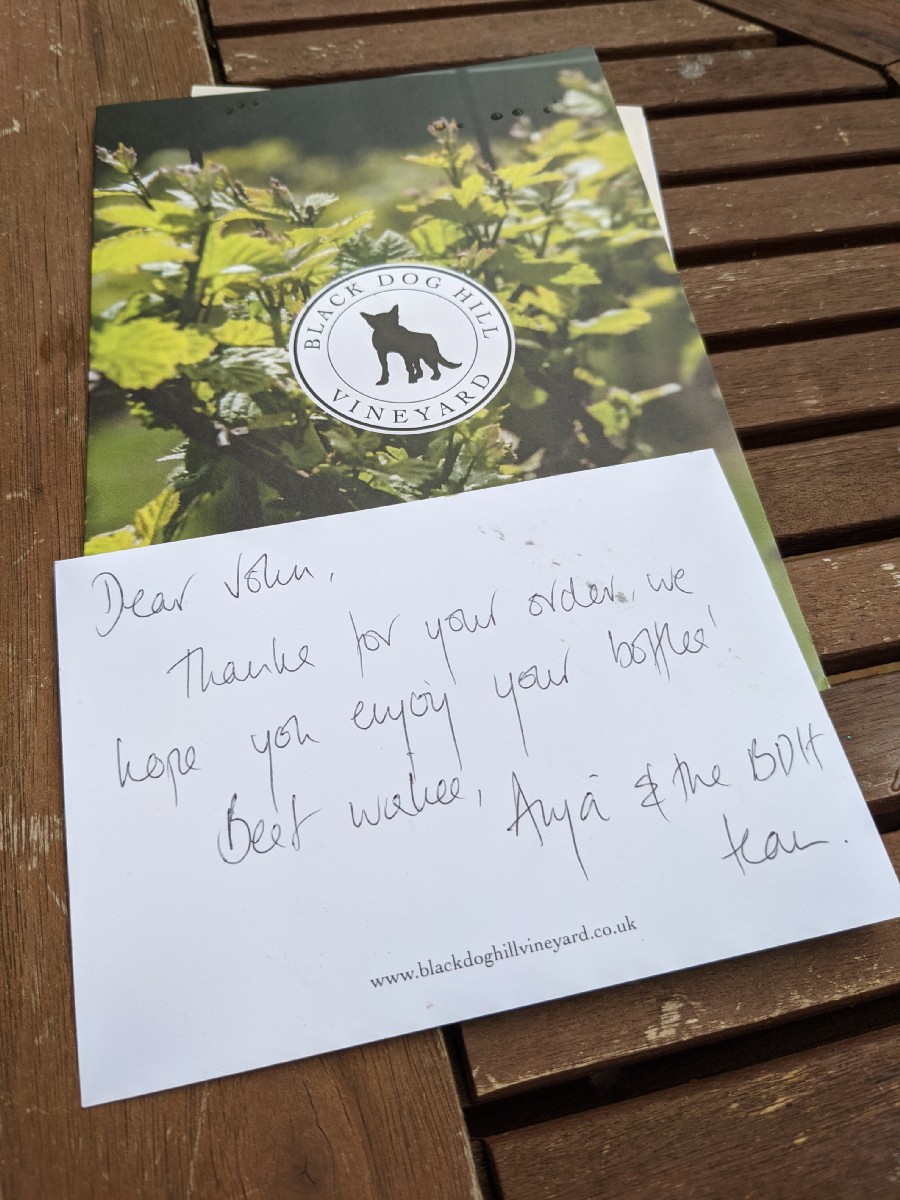 BLACK DOG HILL
VINEYARD
Dear John,
Thanks for your order, we
hope you enjoy your bottles!
Best wishes, Anja & the BDH
team.
www.blackdoghillvineyard.co.uk